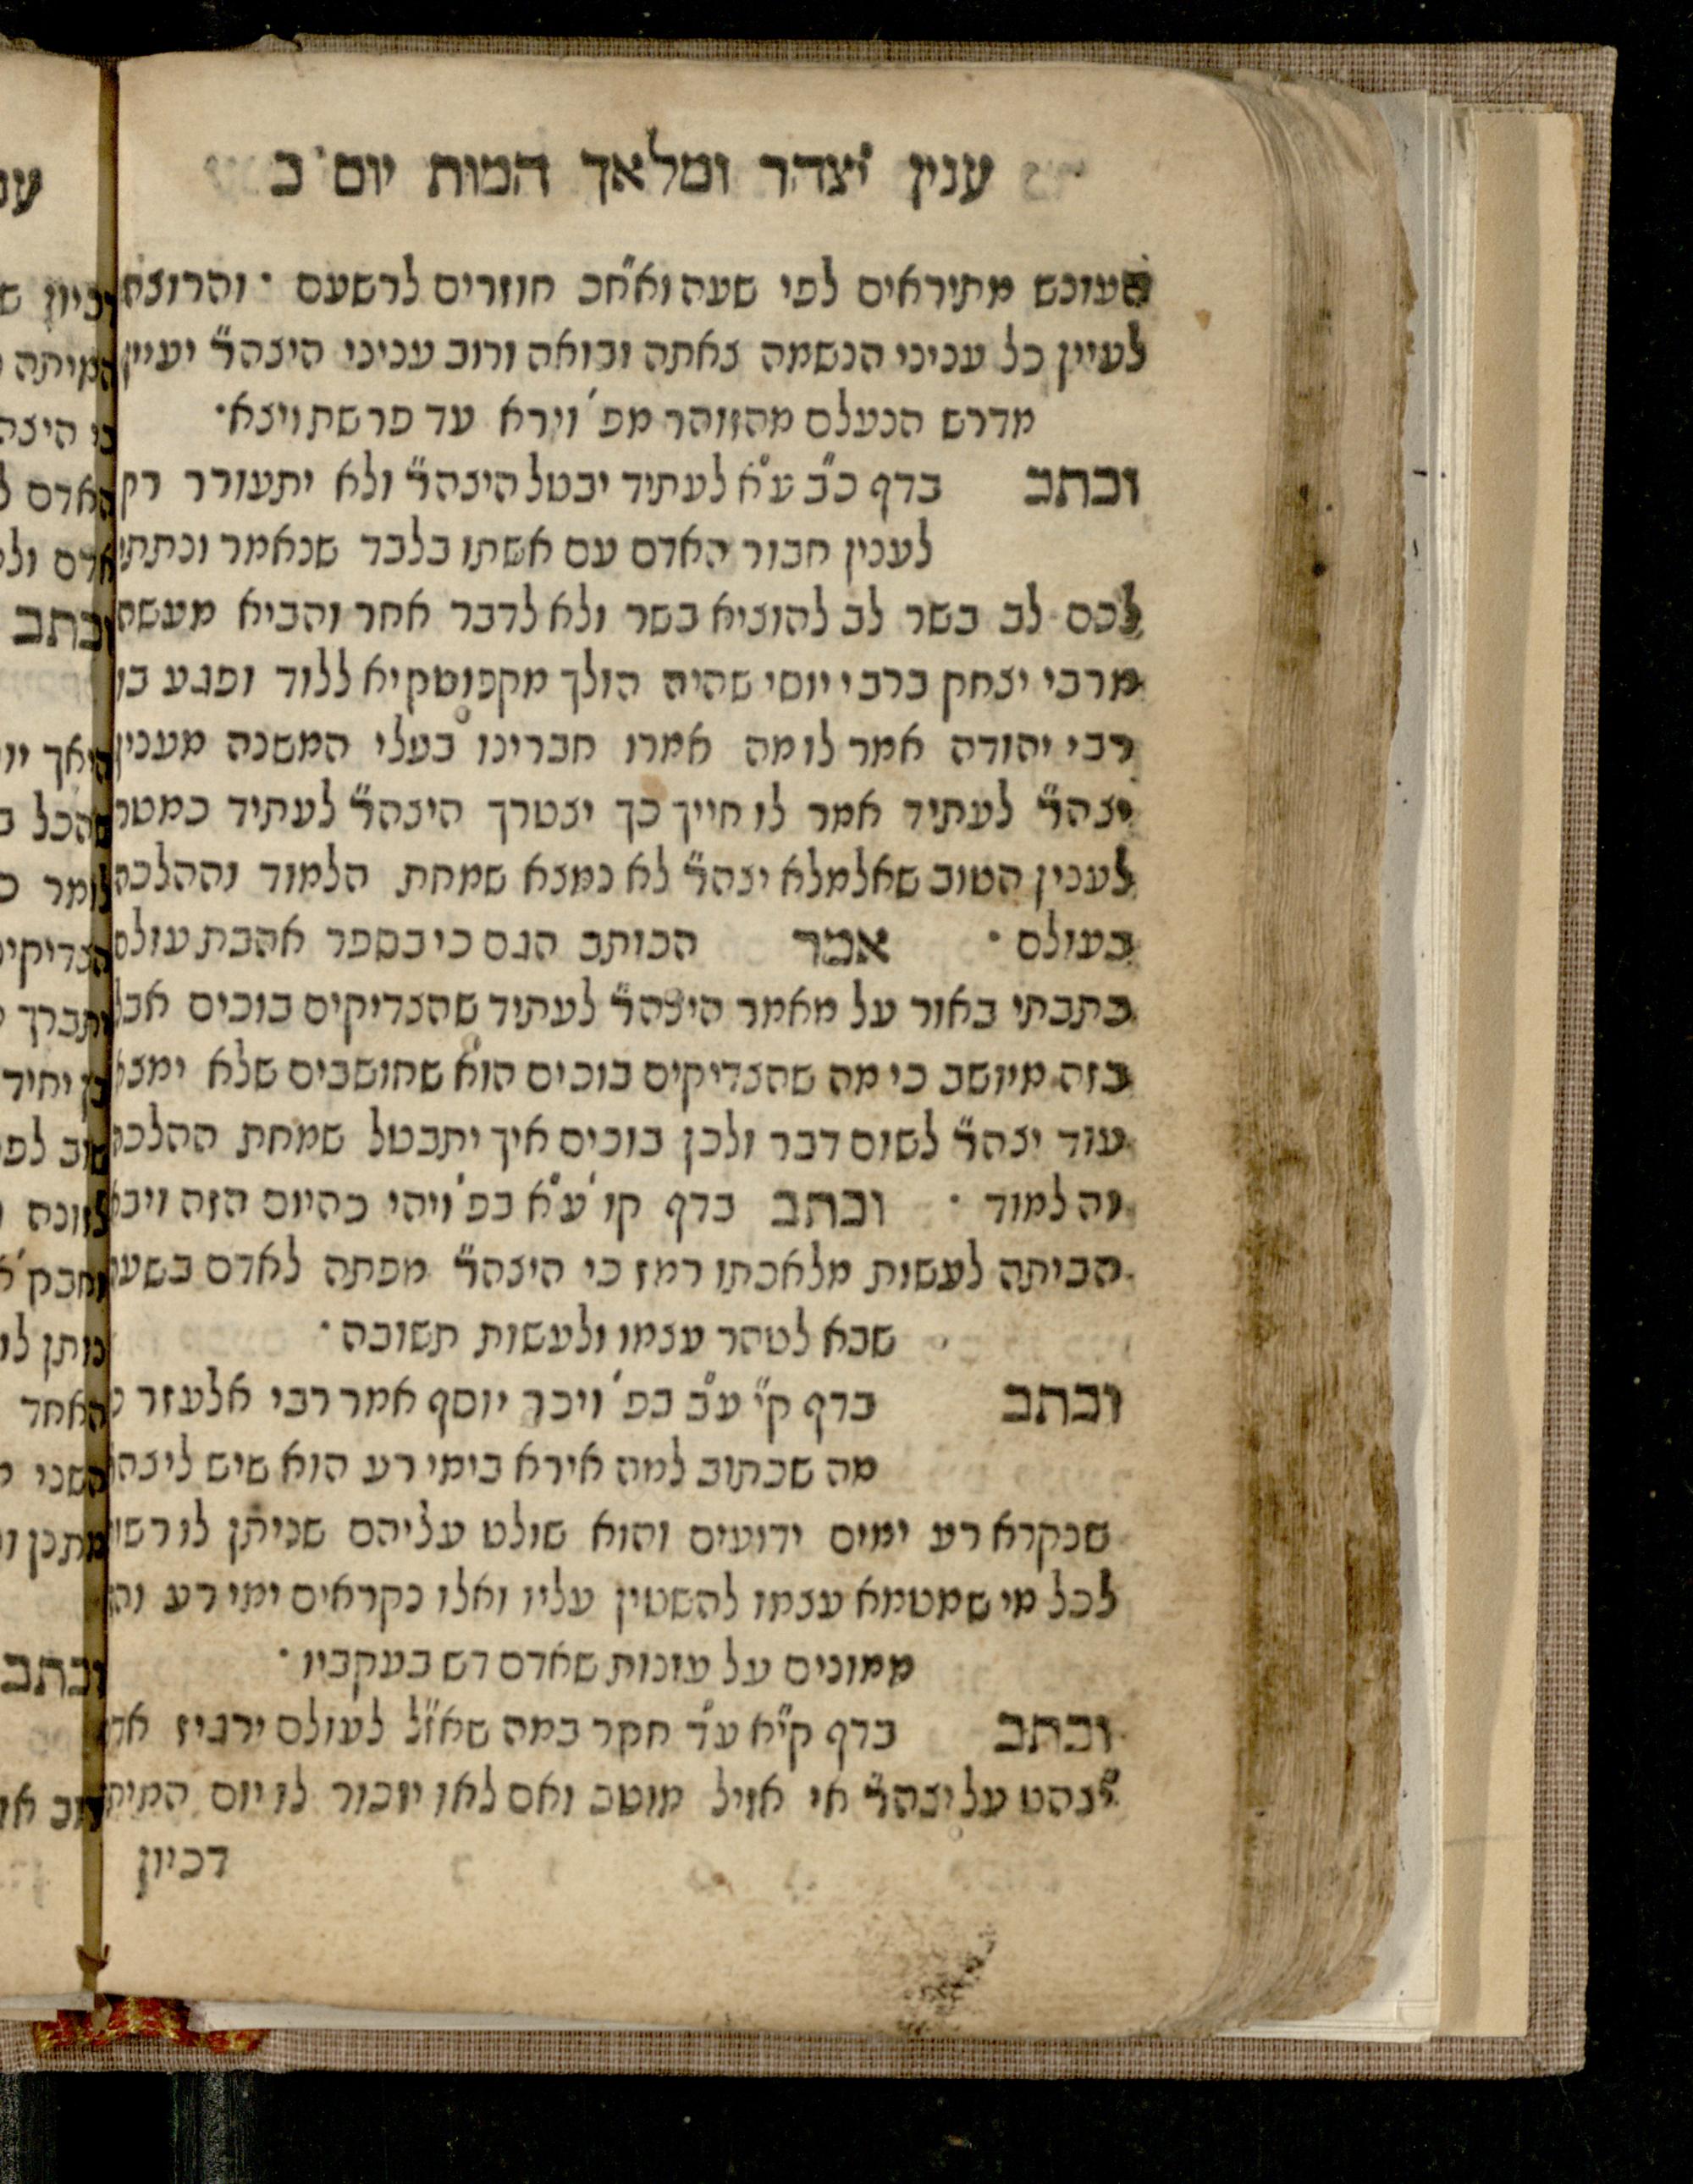 ענין יצהר ומלאך המות יום ב
העונש מתיראים לפי שעה וא״חכ חוזרים לרשעם · והרוצה
לעיין כל עניני הנשמה צאתה ובואה ורוב עניני היצה״ר יעיין
מדרש הנעלם מהזוהר מפ׳ וירא עד פרשת ויצא·
וכתב בדף כ״ב ע״א לעתיד יבטל היצה״ר ולא יתעורר רק
לענין חבור האדם עם אשתו בלבד שנאמר ונתתי
לכם לב בשר לב להוציא בשר ולא לדבר אחר והביא מעשה
מרבי יצחק ברבי יוסי שהיה הולך מקפוטקיא ללוד ופגע בו
רבי יהודה אמר לו מה אמרו חברינו בעלי המשנה מענין
יצה״ר לעתיד אמר לו חייך כך יצטרך היצה״ר לעתיד כמטר
לענין הטוב שאלמלא יצה״ר לא נמצא שמחת הלמוד וההלכה
בעולם · אמר הכותב הגם כי בספר אהבת עולם
כתבתי באור על מאמר היצה״ר לעתיד שהצדיקים בוכים אבל
בזה מיושב כי מה שהצדיקים בוכים הוא שחושבים שלא ימצא
עוד יצה״ר לשום דבר ולכן בוכים איך יתבטל שמחת ההלכה
והלמוד · וכתב בדף קו׳ ע״א בפ׳ ויהי כהיום הזה ויבא
הביתה לעשות מלאכתו רמז כי היצה״ר מפתה לאדם בשעה
שבא לטהר עצמו ולעשות תשובה·
וכתב בדף ק״י ע״ב בפ׳ ויכר יוסף אמר רבי אלעזר
מה שכתוב למה אירא בימי רע הוא שיש ליצה
שנקרא רע ימים ידועים והוא שולט עליהם שניתן לו רשו
לכל מי שמטמא עצמו להשטין עליו ואלו נקראים ימי רע והן
ממונים על עונות שאדם דש בעקביו·
וכתב בדף ק״יא ע״ד חקר במה שא״זל לעולם ירגיז אד
יצהט על יצה״ר אי אזיל מוטב ואם לאו יזכור לו יום המית
דכיון